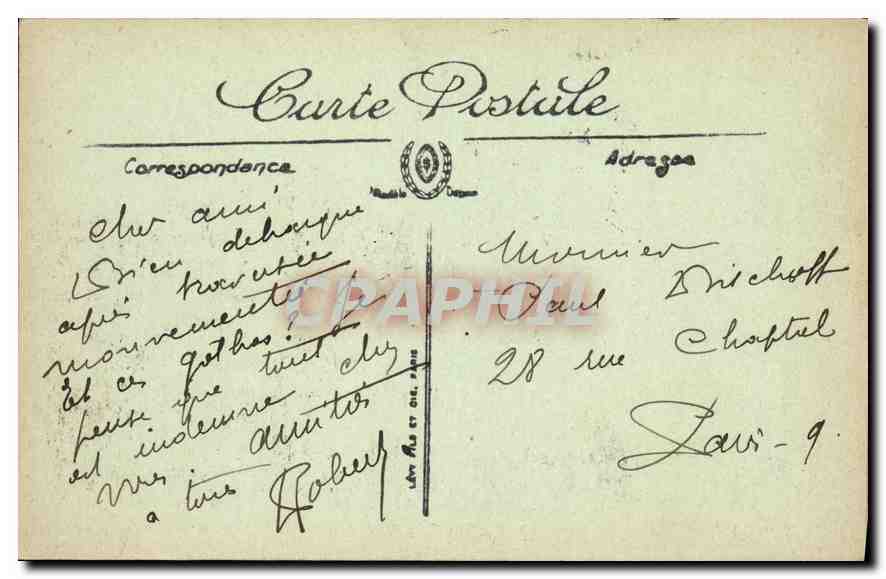 Carte Postale
Correspondance
Adresse
cher ami
Bien debarqué
après traversée
mouvementée
Et ces gothas? Je
pense que tout
est indemne chez
vous. amitiés
a tous Robert
Monsieur
Paul Bischoff
28 rue Chaptal
Paris - 9
LÉVY FILS ET CIE, PARIS
CPAPHIL